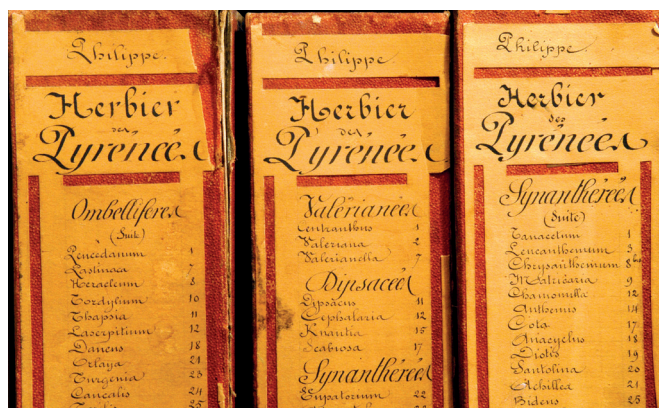 Philippe
Herbier
des
Pyrénées
Ombellifères
(Suite)
Peucedanum 1
Pastinaca 7
Heracleum 8
Tordylium 10
Thapsia 11
Laserpitium 12
Daucus 18
Orlaya 21
Turgenia 23
Caucalis 24
25
Philippe
Herbier
des
Pyrénées
Valérianées
Centranthus 1
Valeriana 2
Valerianella 7
Dipsacées
Dipsacus 11
Cephalaria 12
Knautia 15
Scabiosa 17
Synanthérées
Eupatorium 22
Philippe
Herbier
des
Pyrénées
Synanthérées
(Suite)
Tanacetum 1
Leucanthemum 3
Chrysanthemum 8 bis
Matricaria 9
Chamomilla 12
Anthemis 14
Cota 17
Anacyclus 18
Diotis 19
Santolina 20
Achillea 21
Bidens 25